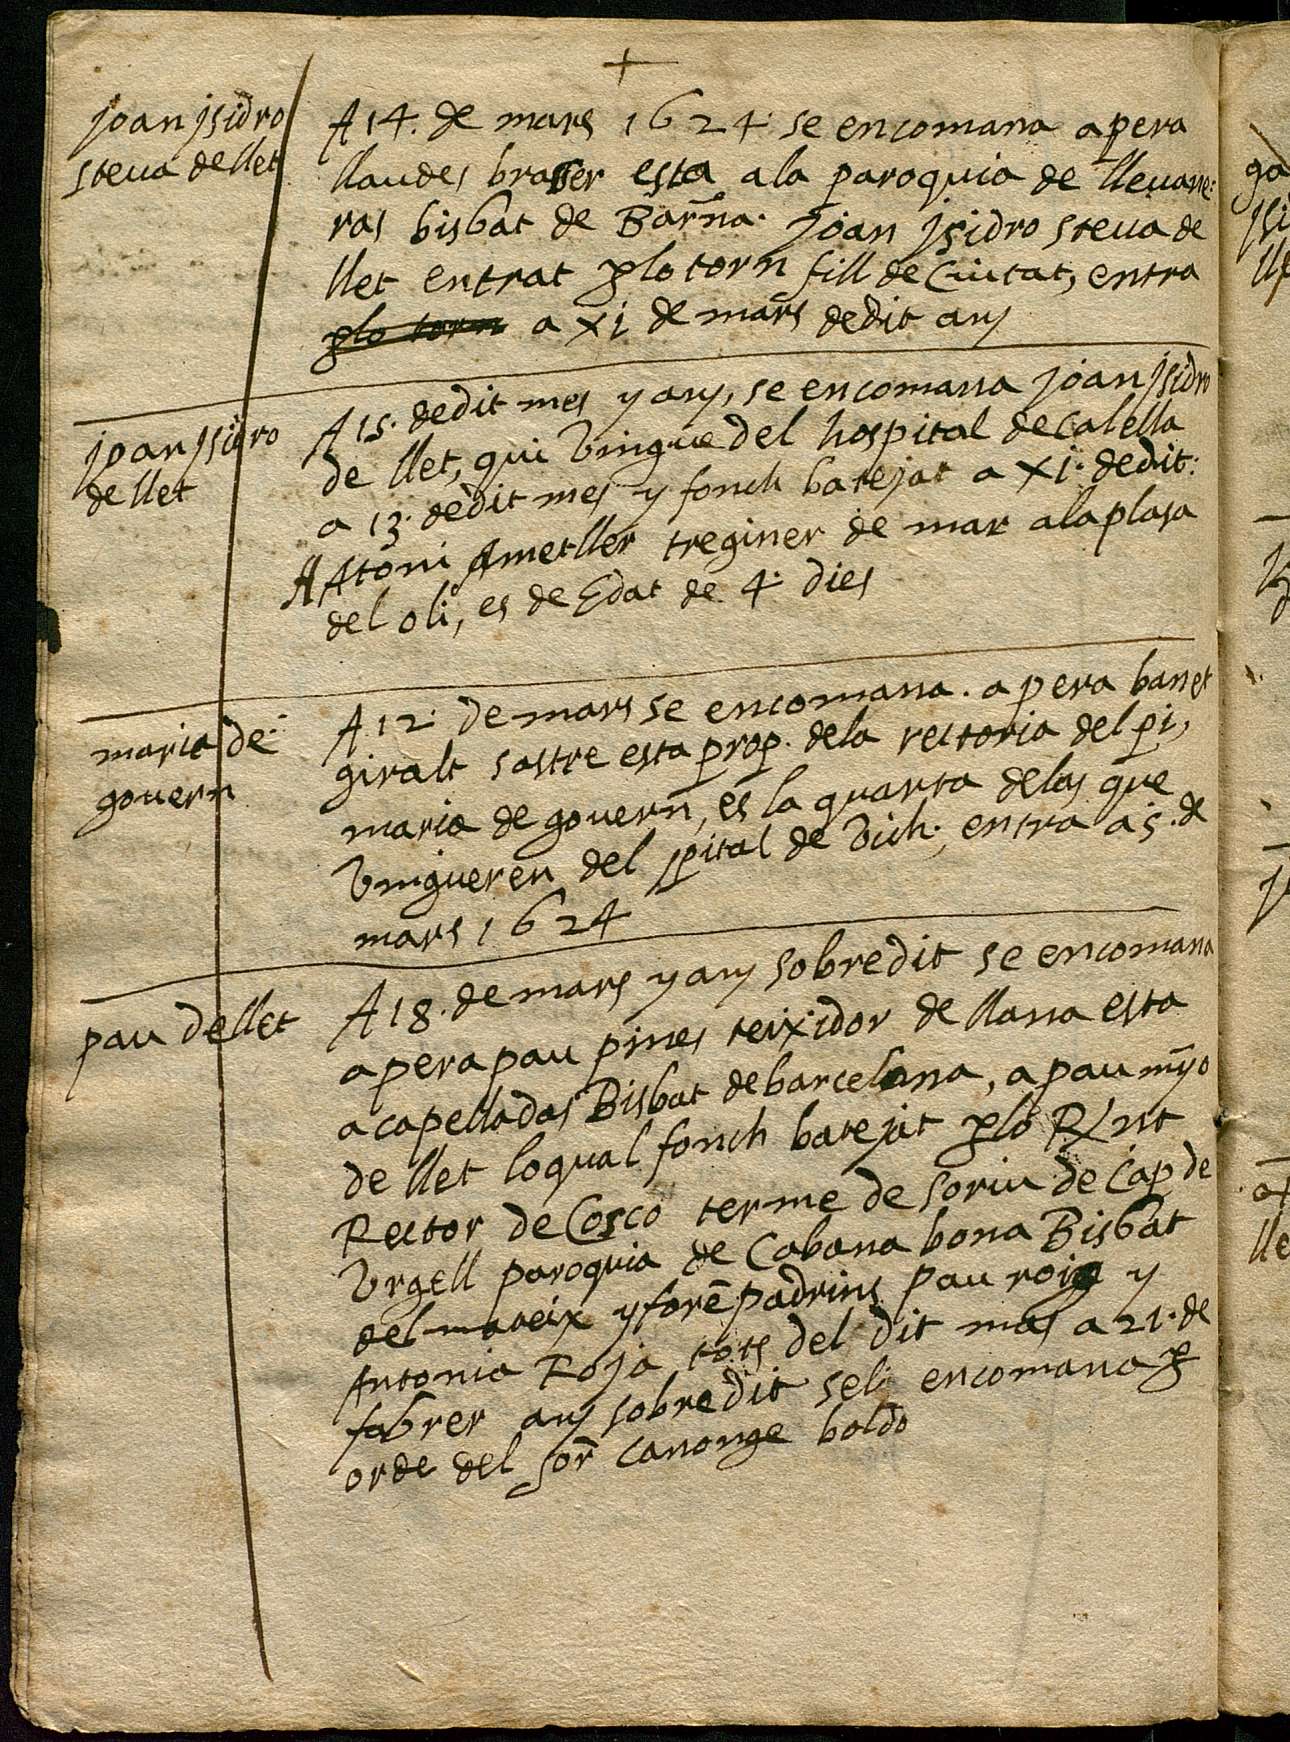 +
joan jsidro
steua de llet
A 14. de mars 1624 se encomana a pera
llaudes brasser esta a la paroquia de lleuane:
ras bisbat de Barña. joan jsidro steua de
llet entrat plo torn fill de Ciutat, entra
plo torn a xi de mars dedit any
joan jsidro
de llet
A 15. dedit mes y any, se encomana joan jsidro
de llet, qui vingue del hospital de calella
a 13. dedit mes y fonch batejat a xi. dedit:
A Atoni Ametller treginer de mar a la plasa
del oli, es de Edat de 4. dies
maria de
gouern
A 12. de mars se encomana. a pera banet
giralt sastre esta prop. dela rectoria del pi,
maria de gouern, es la quarta delas que
vingueren del spital de Vich; entra a 5. de
mars 1624
pau de llet
A 18. de mars y any sobredit se encomana
a pera pau pines teixidor de llana esta
a capelladas Bisbat de barcelona, a pau
de llet loqual fonch batejat plo
Rector de Cosco terme de soriu de Cap de
Vrgell paroquia de Cabana bona Bisbat
del mateix y forē padrins pau roig y
Antonia Roja tots del dit mas a 21. de
fabrer any sobredit seli encomana p
orde del sor canonge boldo
ga
jsi
lle